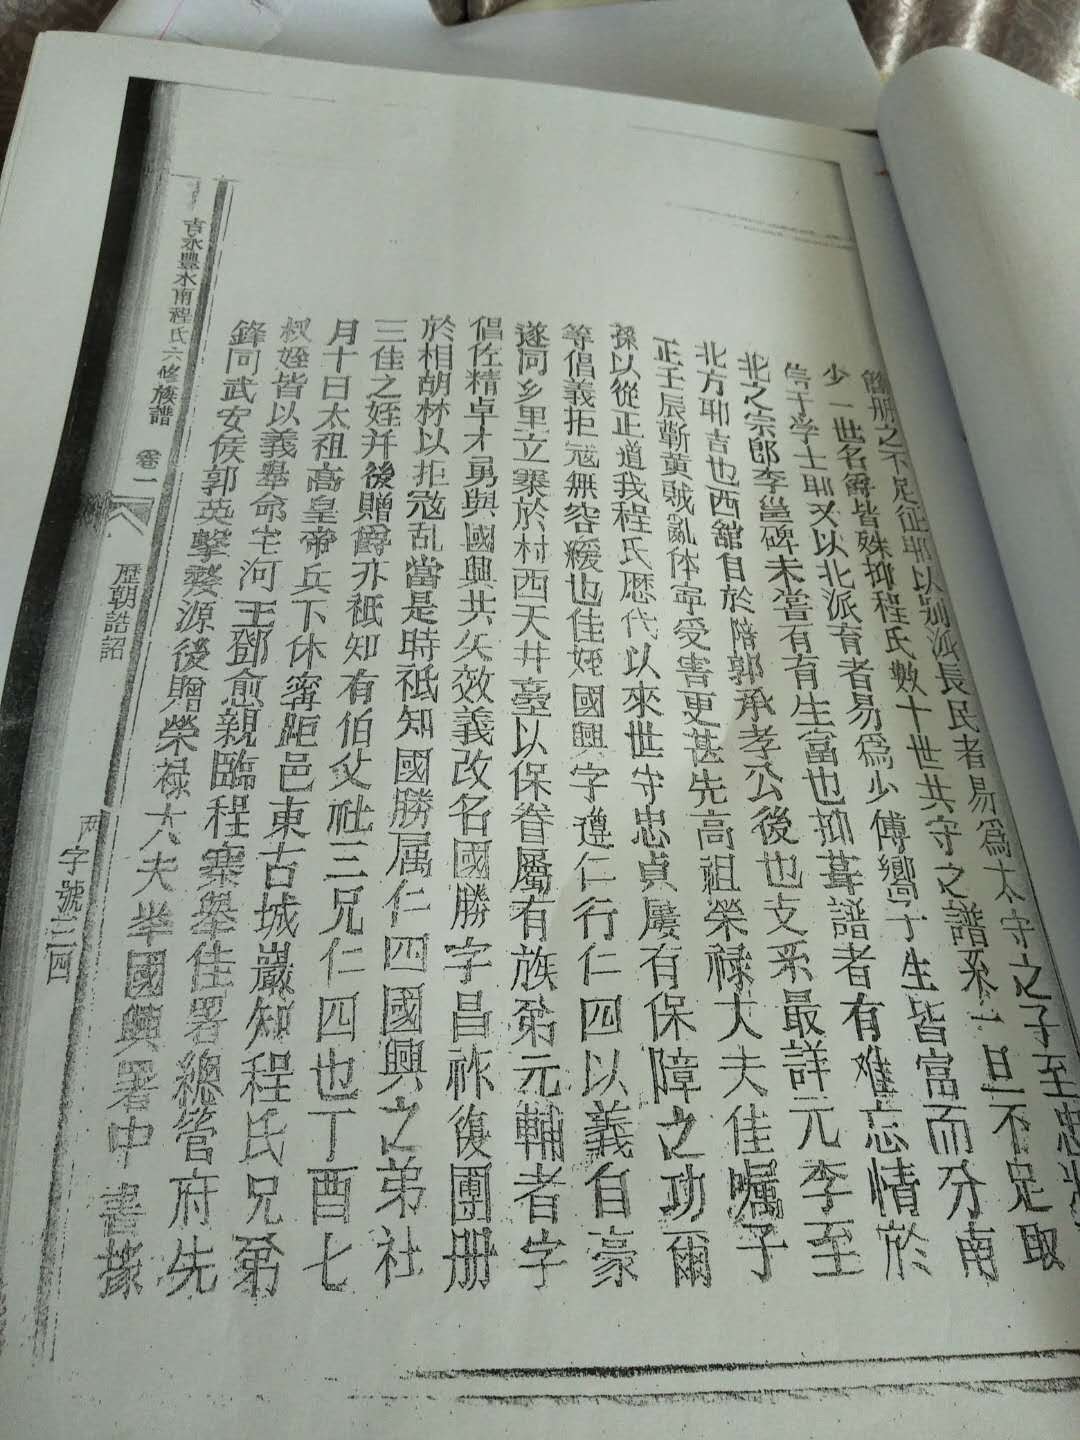 餘册之不足征耶以别派長民者易爲太守之子至忠
少一世名爵皆殊抑程氏數十世共守之譜系一旦不足取
信于学士耶又以北派育者易爲少傅嚮于生皆富而分南
北之宗郎李邕碑未嘗有有生富也抑葺譜者有难忘情於
北方耶吉也西舘自於陪郭承孝公後也支系最詳元季至
正壬辰蘄黄贼亂休寧受害更甚先高祖榮禄大夫佳嘱子
孫以從正道我程氏歷代以來世守忠貞屢有保障之功爾
等倡義拒冦無容緩也佳姪國興字遵仁行仁四以義自豪
遂同乡里立寨於村西天井臺以保眷屬有族弟元輔者字
倡佐精卓才勇與國興共矢效義改名國勝字昌祚復團册
於相胡林以拒寇乱當是時祗知國勝属仁四國興之弟社
三佳之姪并後贈爵亦祗知有伯父社三兄仁四也丁酉七
月十日太祖高皇帝兵下休寗距邑東古城巖知程氏兄弟
叔姪皆以義舉命宅河王鄧愈親臨程寨舉佳署總管府先
鋒同武安侯郭英擊婺源後贈榮禄大夫举國興署中書掾
歷朝誥詔
吉永豐水南程氏六修族譜 卷一
字號三四